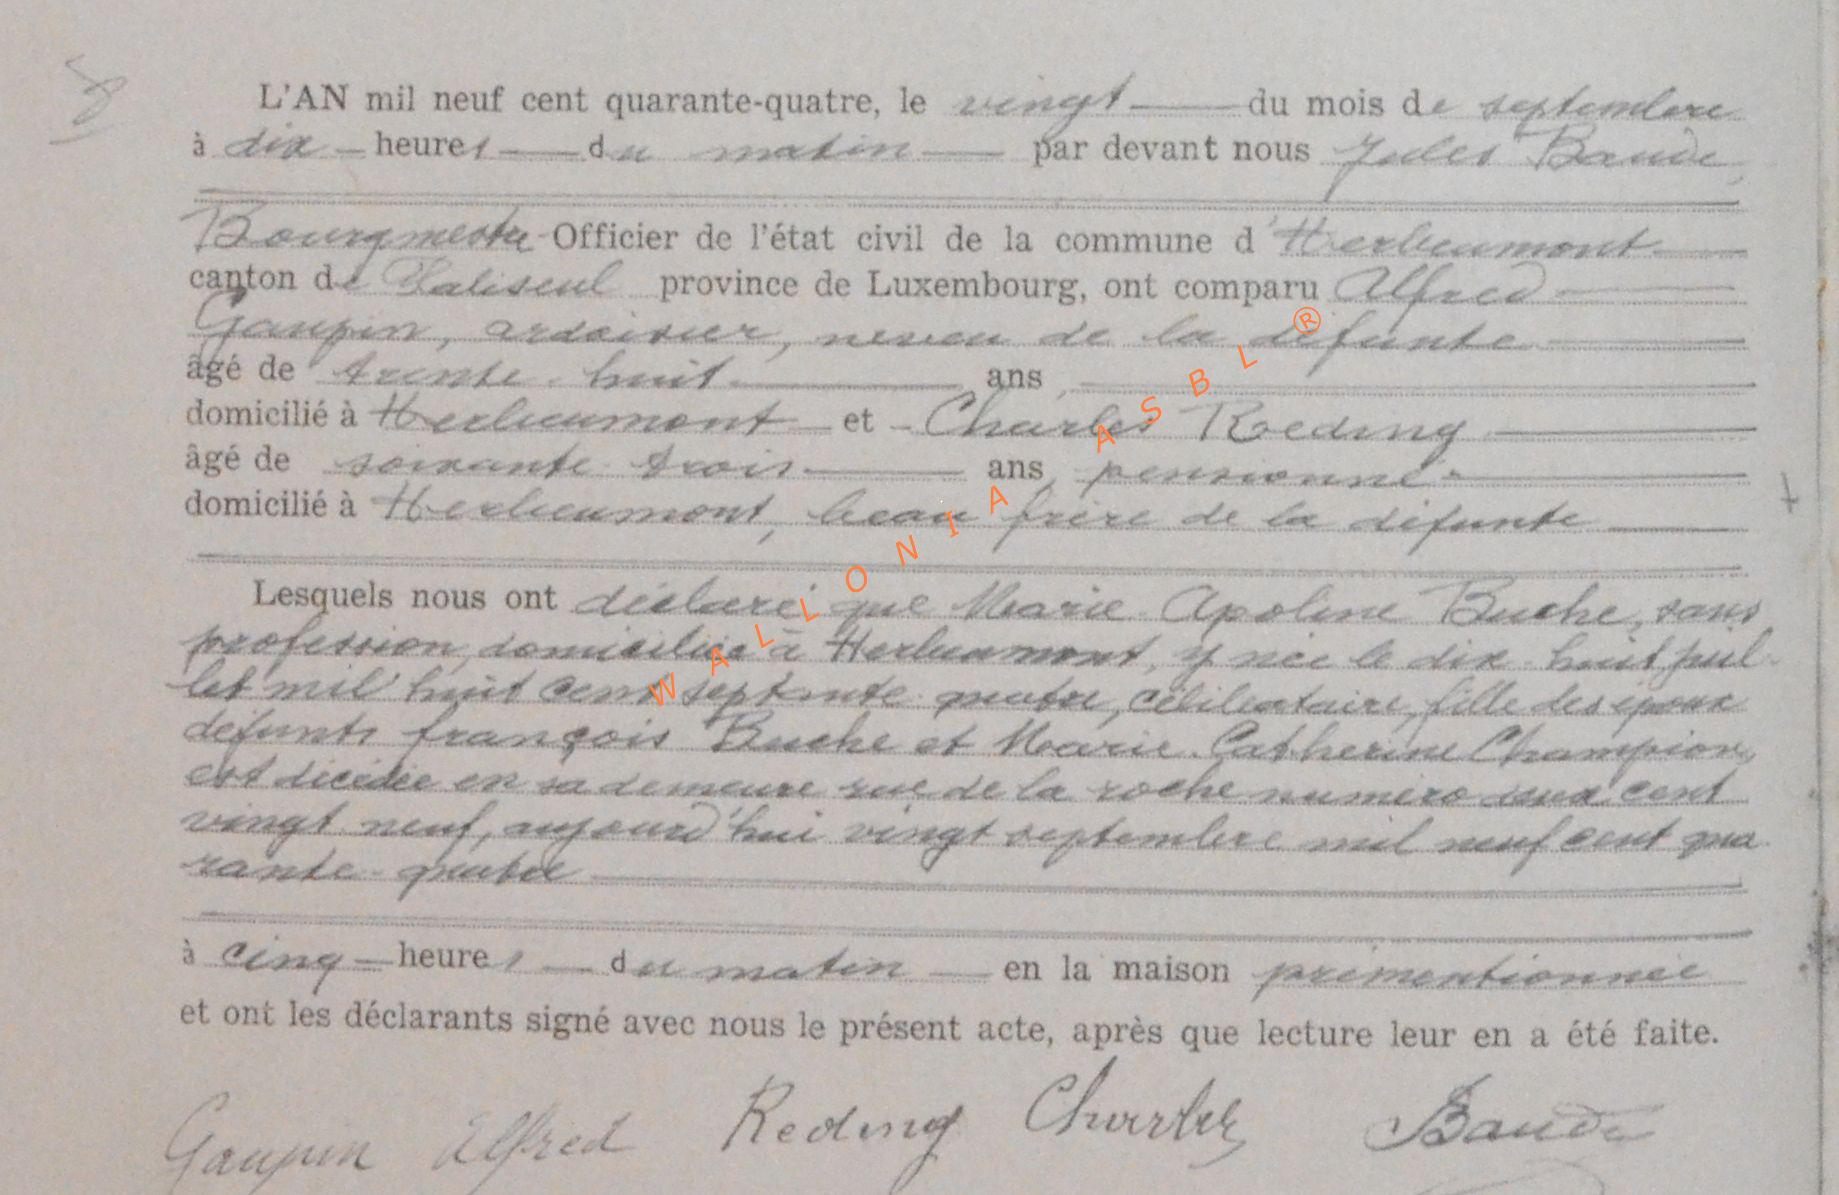 8
L'AN mil neuf cent quarante-quatre, le vingt du mois de septembre
à dix heures du matin par devant nous Jules Baude,
Bourgmestre Officier de l'état civil de la commune d'Herbeumont
canton de Paliseul province de Luxembourg, ont comparu Alfred
Gaupin, ardoisier, neveu de la défunte
âgé de trente-huit ans,
domicilié à Herbeumont et Charles Reding
âgé de soixante-trois ans, pensionné
domicilié à Herbeumont, beau frère de la défunte
Lesquels nous ont déclaré que Marie-Apoline Buche, sans
profession, domiciliée à Herbeumont, y née le dix-huit juil-
let mil huit cent septante-quatre, célibataire, fille des époux
défunts françois Buche et Marie-Catherine Champion,
est décédée en sa demeure rue de la roche numéro deux cent
vingt neuf, aujourd'hui vingt septembre mil neuf cent qua-
rante-quatre
à cinq heures du matin en la maison prémentionnée
et ont les déclarants signé avec nous le présent acte, après que lecture leur en a été faite.
Gaupin Alfred Reding Charles Baude
WALLONIA ASBL ®